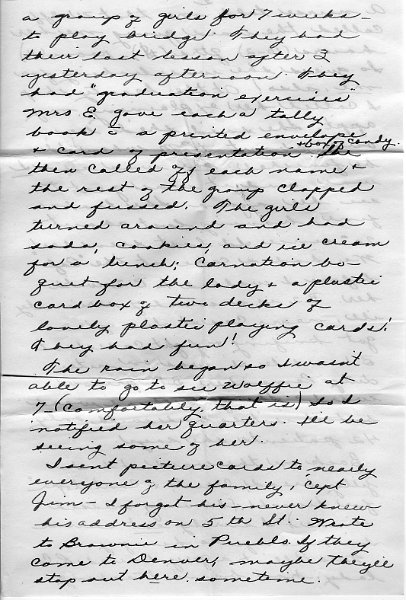 a group of girls for 7 weeks -
to play bridge. They had
their last lesson after 3
yesterday afternoon. They
had "graduation exercises"
Mrs E gave each a tally
book & a printed envelope
& box of candy.
& card of presentation. She
then called off each name &
the rest of the group clapped
and fussed. The girls
turned around and had
soda, cookies, and ice cream
for a lunch; Carnation bo-
quet for the lady & a plastic
card box of two decks of
lovely plastic playing cards!
They had fun!
The rain began so I wasn't
able to go to see Wolffie at
7 - (comfortably that is) So I
notified her quarters. I'll be
seeing some of her.
I sent picture cards to nearly
everyone of the family, 'cept
Jim - I forgot his - never knew
his address on 5th St. Wrote
to Brownie in Pueblo. If they
come to Denver, maybe they'll
stop out here sometime.